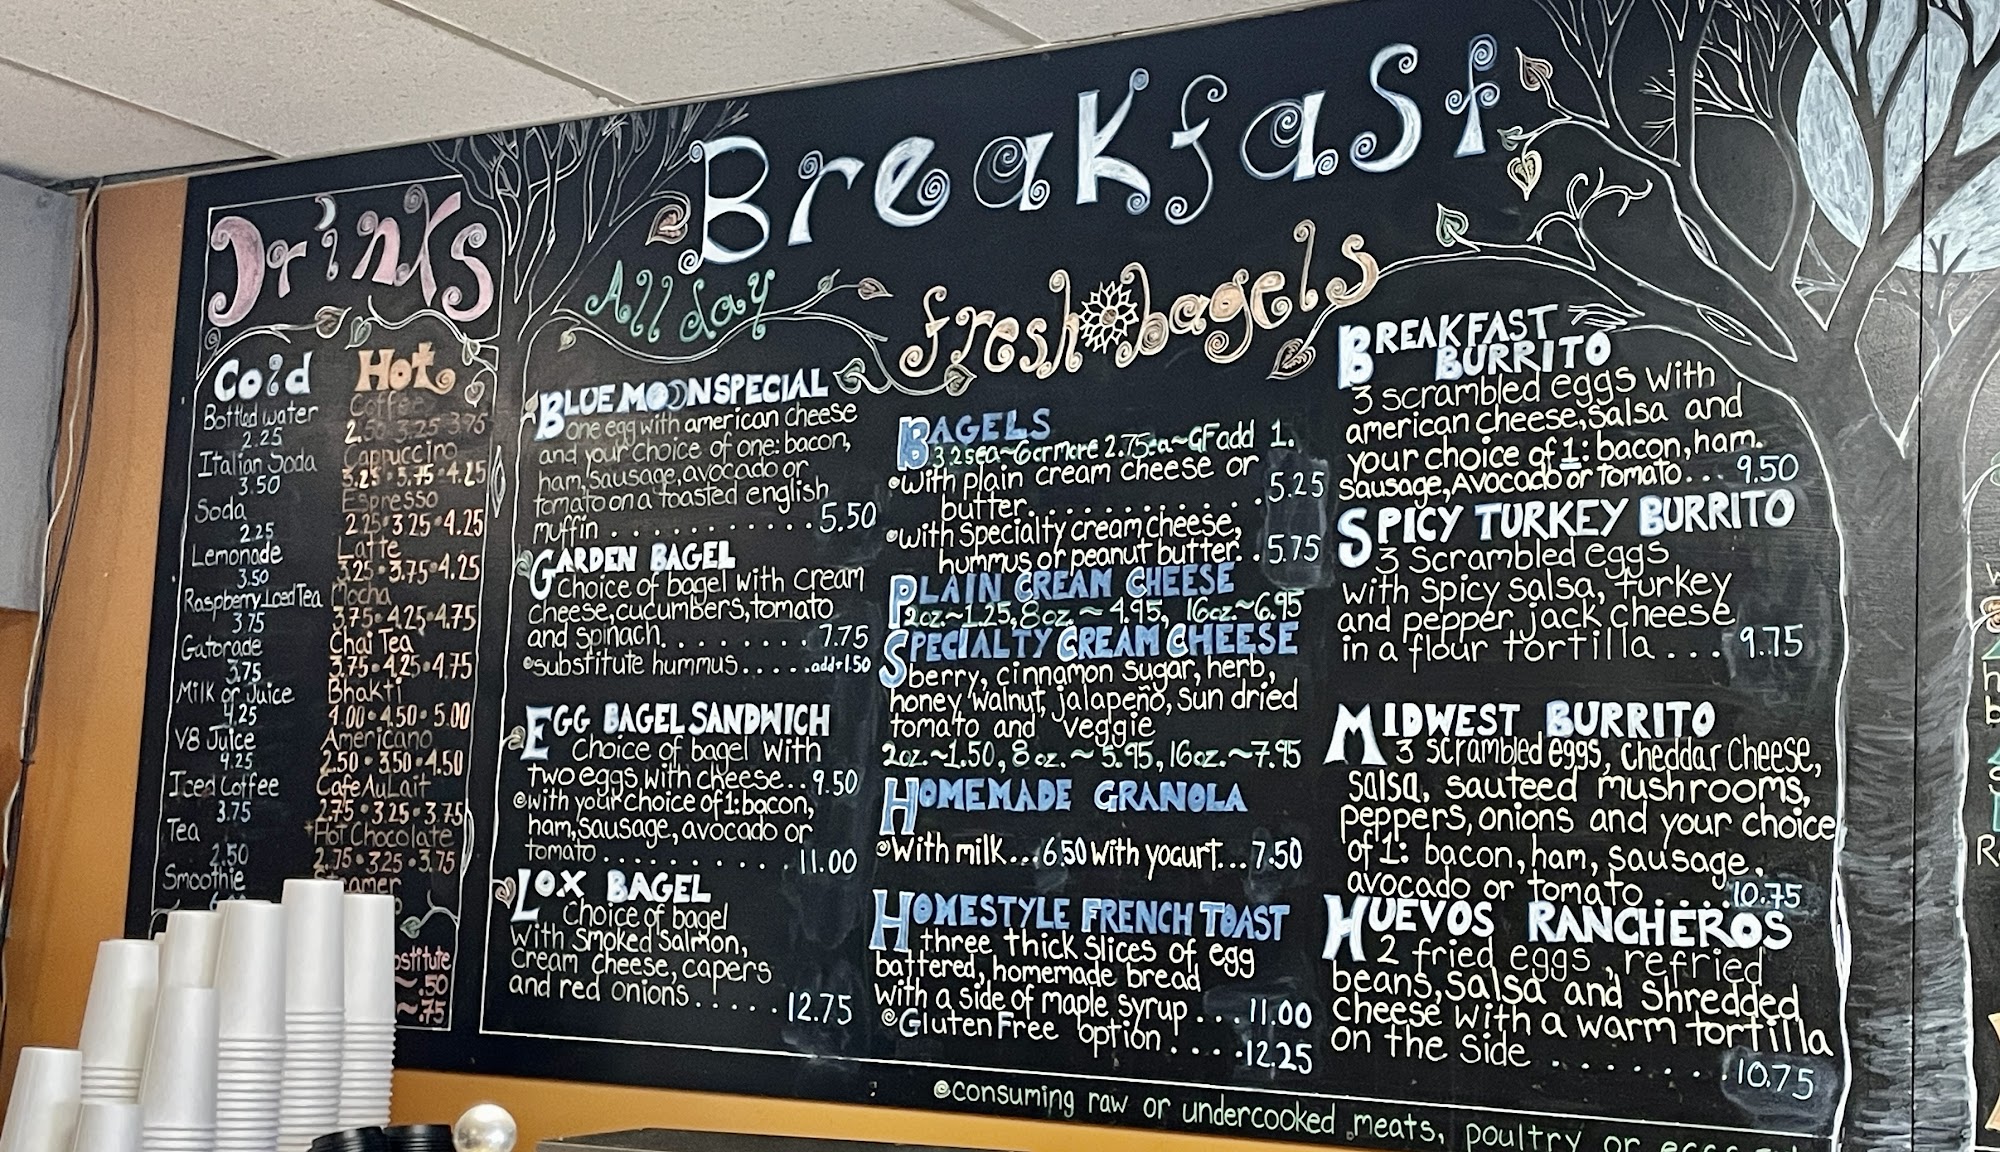 Drinks
Cold
Bottled water
2.25
Italian Soda
3.50
Soda
2.25
Lemonade
3.50
Raspberry Iced Tea
3.75
Gatorade
3.75
Milk or Juice
4.25
V8 Juice
4.25
Iced Coffee
3.75
Tea
2.50
Smoothie
Hot
Coffee
2.50 3.25 3.75
Cappuccino
3.25 • 3.75 • 4.25
Espresso
2.25 • 3.25 • 4.25
Latte
3.25 • 3.75 • 4.25
Mocha
3.75 • 4.25 • 4.75
Chai Tea
3.75 • 4.25 • 4.75
Bhakti
4.00 • 4.50 • 5.00
Americano
2.50 • 3.50 • 4.50
Cafe Au Lait
2.75 • 3.25 • 3.75
Hot Chocolate
2.75 • 3.25 • 3.75
~.50
~.75
Breakfast
All day
BLUE MOON SPECIAL
one egg with american cheese
and your choice of one: bacon,
ham, sausage, avocado or
tomato on a toasted english
muffin . . . . . . . . . . . 5.50
GARDEN BAGEL
Choice of bagel with cream
cheese, cucumbers, tomato
and spinach. . . . . . . . 7.75
substitute hummus. . . . . add+1.50
EGG BAGEL SANDWICH
Choice of bagel with
two eggs with cheese. . 9.50
with your choice of 1: bacon,
ham, sausage, avocado or
tomato. . . . . . . . . . . 11.00
LOX BAGEL
Choice of bagel
with smoked salmon,
cream cheese, capers
and red onions. . . . . 12.75
fresh bagels
BAGELS
3.25ea~6 or more 2.75ea~GF add 1.
with plain cream cheese or
butter. . . . . . . . . . . . 5.25
with Specialty cream cheese,
hummus or peanut butter. . 5.75
PLAIN CREAM CHEESE
2oz.~1.25, 8oz.~4.95, 16oz.~6.95
SPECIALTY CREAM CHEESE
berry, cinnamon sugar, herb,
honey walnut, jalapeño, sun dried
tomato and veggie
2oz.~1.50, 8oz.~5.95, 16oz.~7.95
HOMEMADE GRANOLA
With milk...6.50 with yogurt...7.50
HOMESTYLE FRENCH TOAST
three thick slices of egg
battered, homemade bread
with a side of maple syrup . . . 11.00
Gluten Free option . . . . 12.25
BREAKFAST
BURRITO
3 scrambled eggs with
american cheese, salsa and
your choice of 1: bacon, ham.
sausage, Avocado or tomato. . . 9.50
SPICY TURKEY BURRITO
3 Scrambled eggs
with spicy salsa, turkey
and pepper jack cheese
in a flour tortilla . . . 9.75
MIDWEST BURRITO
3 scrambled eggs, cheddar cheese,
salsa, sauteed mushrooms,
peppers, onions and your choice
of 1: bacon, ham, sausage,
avocado or tomato . . . . 10.75
HUEVOS RANCHEROS
2 fried eggs, refried
beans, salsa and shredded
cheese with a warm tortilla
on the side . . . . . . . . 10.75
consuming raw or undercooked meats, poultry or